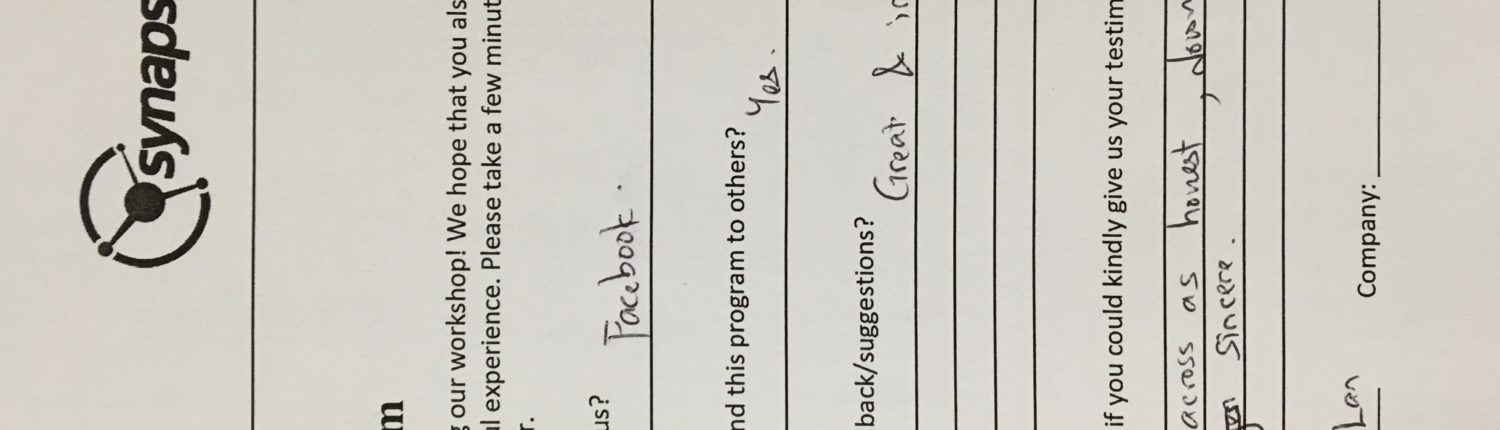 synaps
m
g our workshop! We hope that you als
ul experience. Please take a few minut
r.
us? Facebook.
nd this program to others? Yes.
back/suggestions? Great & in
if you could kindly give us your testim
across as honest, down
sincere.
Lan Company: